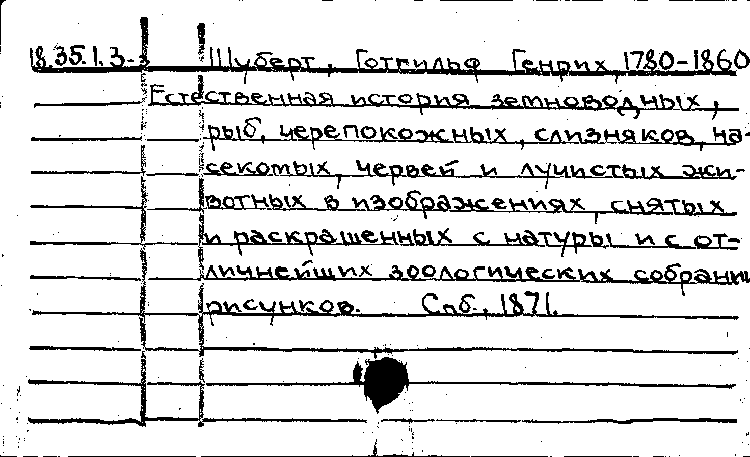 18.35.1.3-3 Шуберт, Готгильф Генрих, 1780-1860
Естественная история земноводных,
рыб, черепокожных, слизняков, на-
секомых, червей и лучистых жи-
вотных в изображениях, снятых
и раскрашенных с натуры и с от-
личнейших зоологических собраний
рисунков. Спб., 1871.